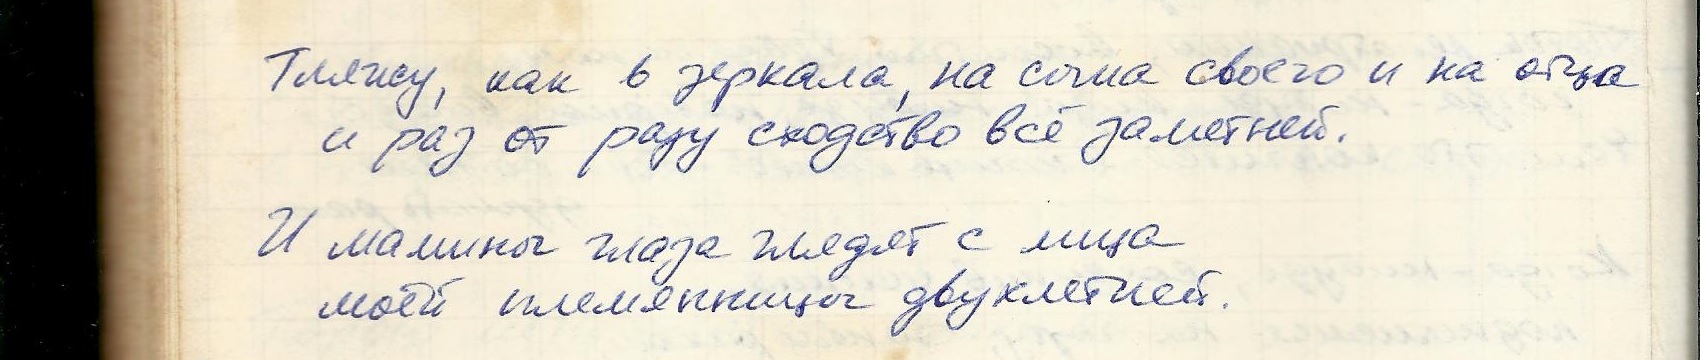 Гляжу, как в зеркала, на сына своего и на отца
и раз от разу сходство всё заметней.
И мамины глаза глядят с лица
моей племянницы двухлетней.